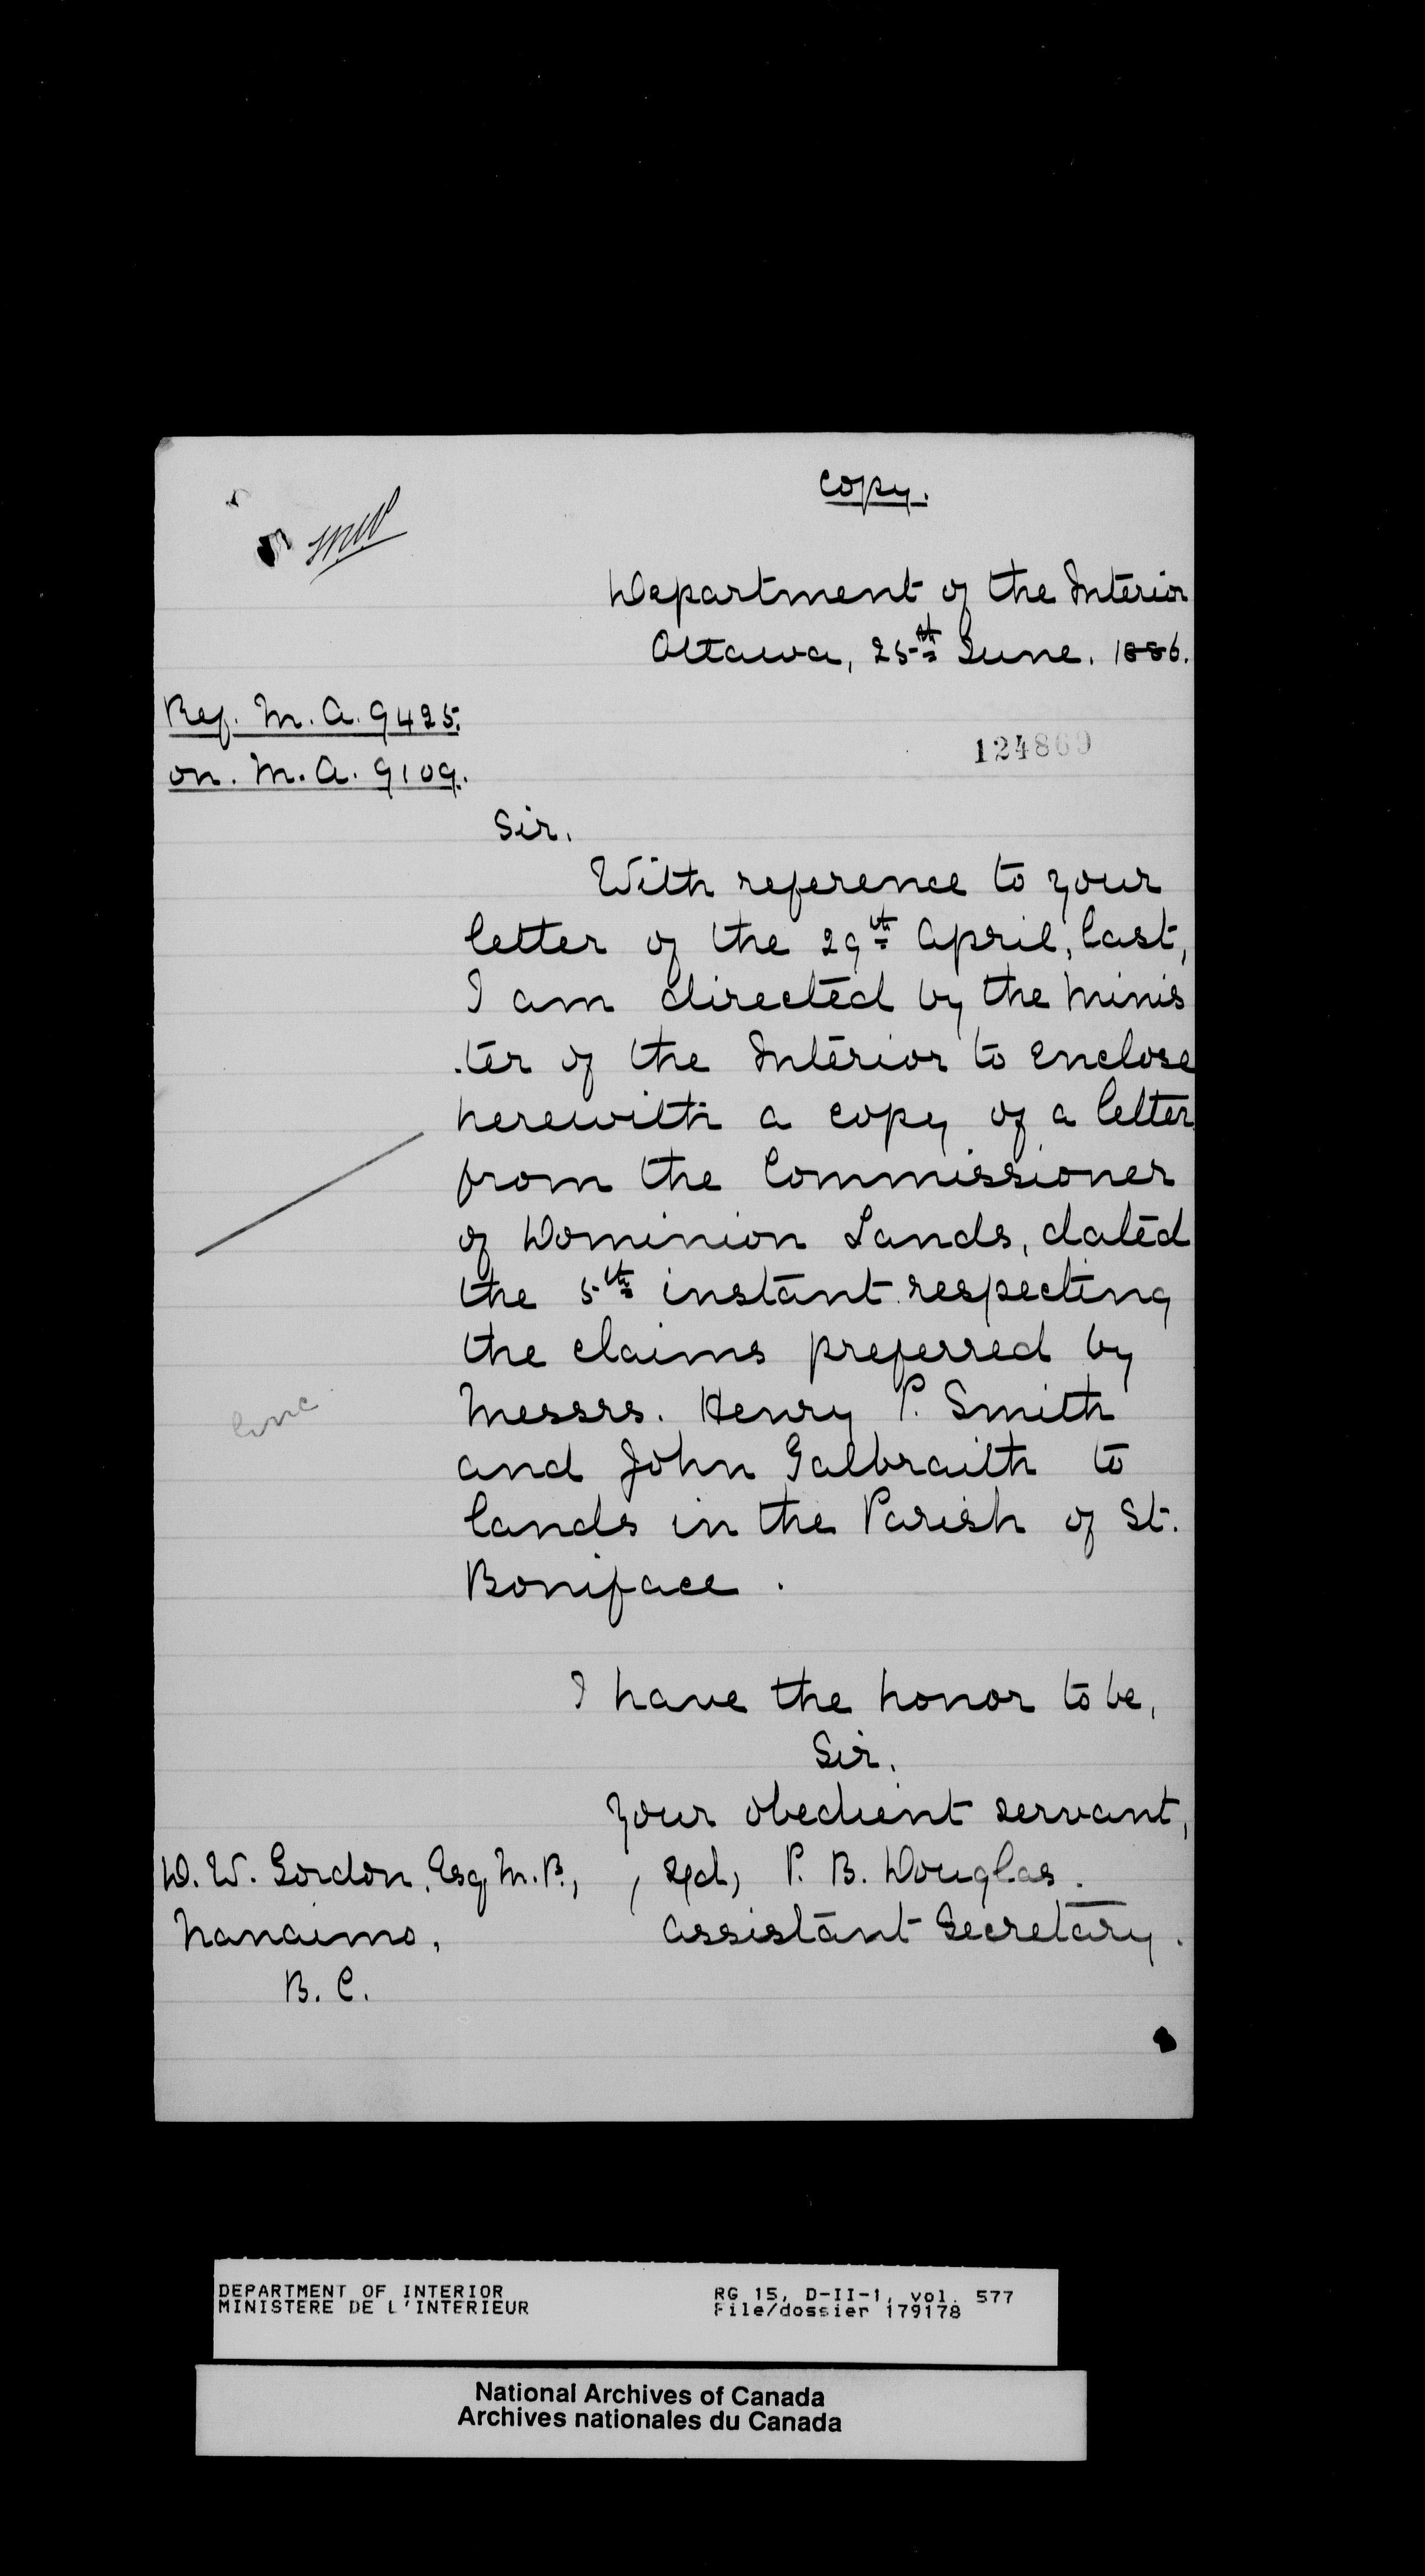 Copy.
Department of the Interior
Ottawa, 25th June. 1886.
Ref. M. A. 9425.
on. M. A. 9109.
124869
Sir.
With reference to your
letter of the 29th April, last,
I am directed by the Minis
.ter of the Interior to enclose
herewith a copy of a letter
from the Commissioner
of Dominion Lands, dated
the 5th instant respecting
the claims preferred by
Messrs. Henry P. Smith
and John Galbraith to
lands in the Parish of St.
Boniface.
I have the honor to be,
Sir.
Your obedient servant,
D. W. Gordon, Esq, M. P., (sgd) P. B. Douglas.
Nanaimo, Assistant Secretary.
B. C.
DEPARTMENT OF INTERIOR
MINISTERE DE L'INTERIEUR
RG 15, D-II-1, vol. 577
File/dossier 179178
National Archives of Canada
Archives nationales du Canada